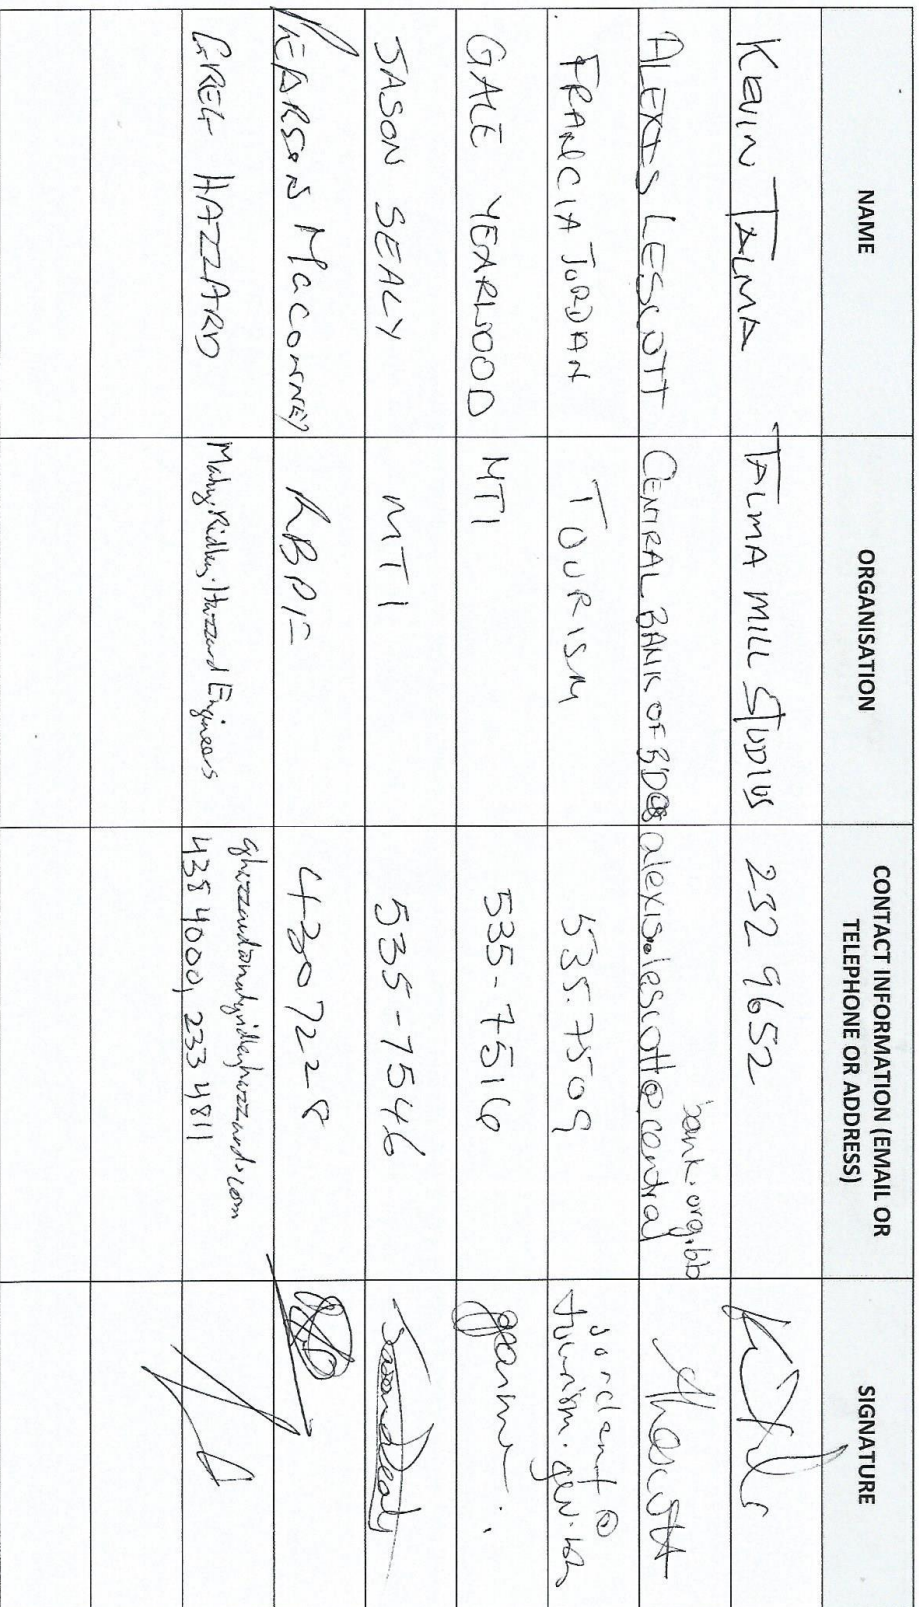 NAME ORGANISATION CONTACT INFORMATION (EMAIL OR TELEPHONE OR ADDRESS) SIGNATURE
KEVIN TALMA TALMA MILL STUDIOS 232 9652
ALEXIS LESCOTT CENTRAL BANK OF B'DOS alexis.lescott@central bank.org.bb
FRANCIA JORDAN TOURISM 535.7509 jordanf@ tourism.gov.bb
GALE YEARWOOD MTI 535-7516
JASON SEALY MTI 535-7546
PEARSON McCONNEY RBPF 4307228
GREG HAZZARD Mahy Ridley Hazzard Engineers ghazzard@mahyridleyhazzard.com
438 4000, 233 4811